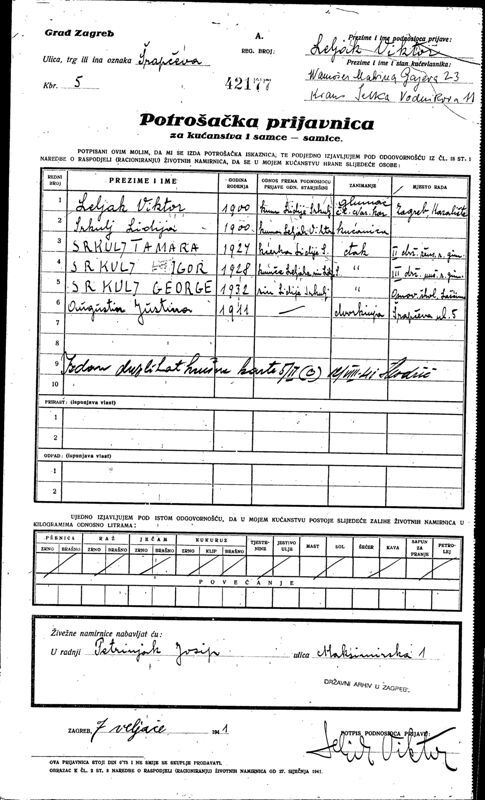 Grad Zagreb
A.
REG. BROJ:
Prezime i ime podnosioca prijave:
Leljak Viktor
Ulica, trg ili ina oznaka Šrapčeva
Prezime i ime i stan kućevlasnika:
Kbr. 5
42177
Gajeva 23
Kraus Jelka Vodnikova 11
Potrošačka prijavnica
za kućanstva i samce — samice.
POTPISANI OVIM MOLIM, DA MI SE IZDA POTROŠAČKA ISKAZNICA, TE PODJEDNO IZJAVLJUJEM POD ODGOVORNOŠĆU IZ ČL. 15 ST. 1
NAREDBE O RASPODJELI (RACIONIRANJU) ŽIVOTNIH NAMIRNICA, DA SE U MOJEM KUĆANSTVU HRANE SLIJEDEĆE OSOBE:
REDNI BROJ PREZIME I IME GODINA ROĐENJA ODNOS PREMA PODNOSIOCU PRIJAVE ODN. STARJEŠINI ZANIMANJE MJESTO RADA
1 Leljak Viktor 1900 glumac Zagreb
2 Srkulj Lidija 1900 Leljak Viktor kućanica
3 SRKULJ TAMARA 1927 kćerka Lidije S. đak II
4 SRKULJ IGOR 1928 " III
5 SRKULJ GEORGE 1932 sin Lidije Srkulj "
6 Augustin Justina 1911 — dvorkinja Šrapčeva ul. 5
7
8
9 Izdan duplikat krušne karte
10
PRIRAST: (ispunjava vlast)
1
2
OTPAD: (ispunjava vlast)
1
2
UJEDNO IZJAVLJUJEM POD ISTOM ODGOVORNOŠĆU, DA U MOJEM KUĆANSTVU POSTOJE SLIJEDEĆE ZALIHE ŽIVOTNIH NAMIRNICA U
KILOGRAMIMA ODNOSNO LITRAMA:
PŠENICA RAŽ JEČAM KUKURUZ TJESTENINE JESTIVO ULJE MAST SOL ŠEĆER KAVA SAPUN ZA PRANJE PETROLEJ
ZRNO BRAŠNO ZRNO BRAŠNO ZRNO BRAŠNO ZRNO KLIP BRAŠNO
POVEĆANJE
Živežne namirnice nabavljat ću:
U radnji Petrinjak Josip ulica Maksimirska 1
DRŽAVNI ARHIV U ZAGREBU
ZAGREB, 7 veljače 1941
POTPIS PODNOSIOCA PRIJAVE:
Leljak Viktor
OVA PRIJAVNICA STOJI DIN 0'75 I NE SMIJE SE SKUPLJE PRODAVATI.
OBRAZAC K ČL. 2 ST. 3 NAREDBE O RASPODJELI (RACIONIRANJU) ŽIVOTNIH NAMIRNICA OD 27. SIJEČNJA 1941.